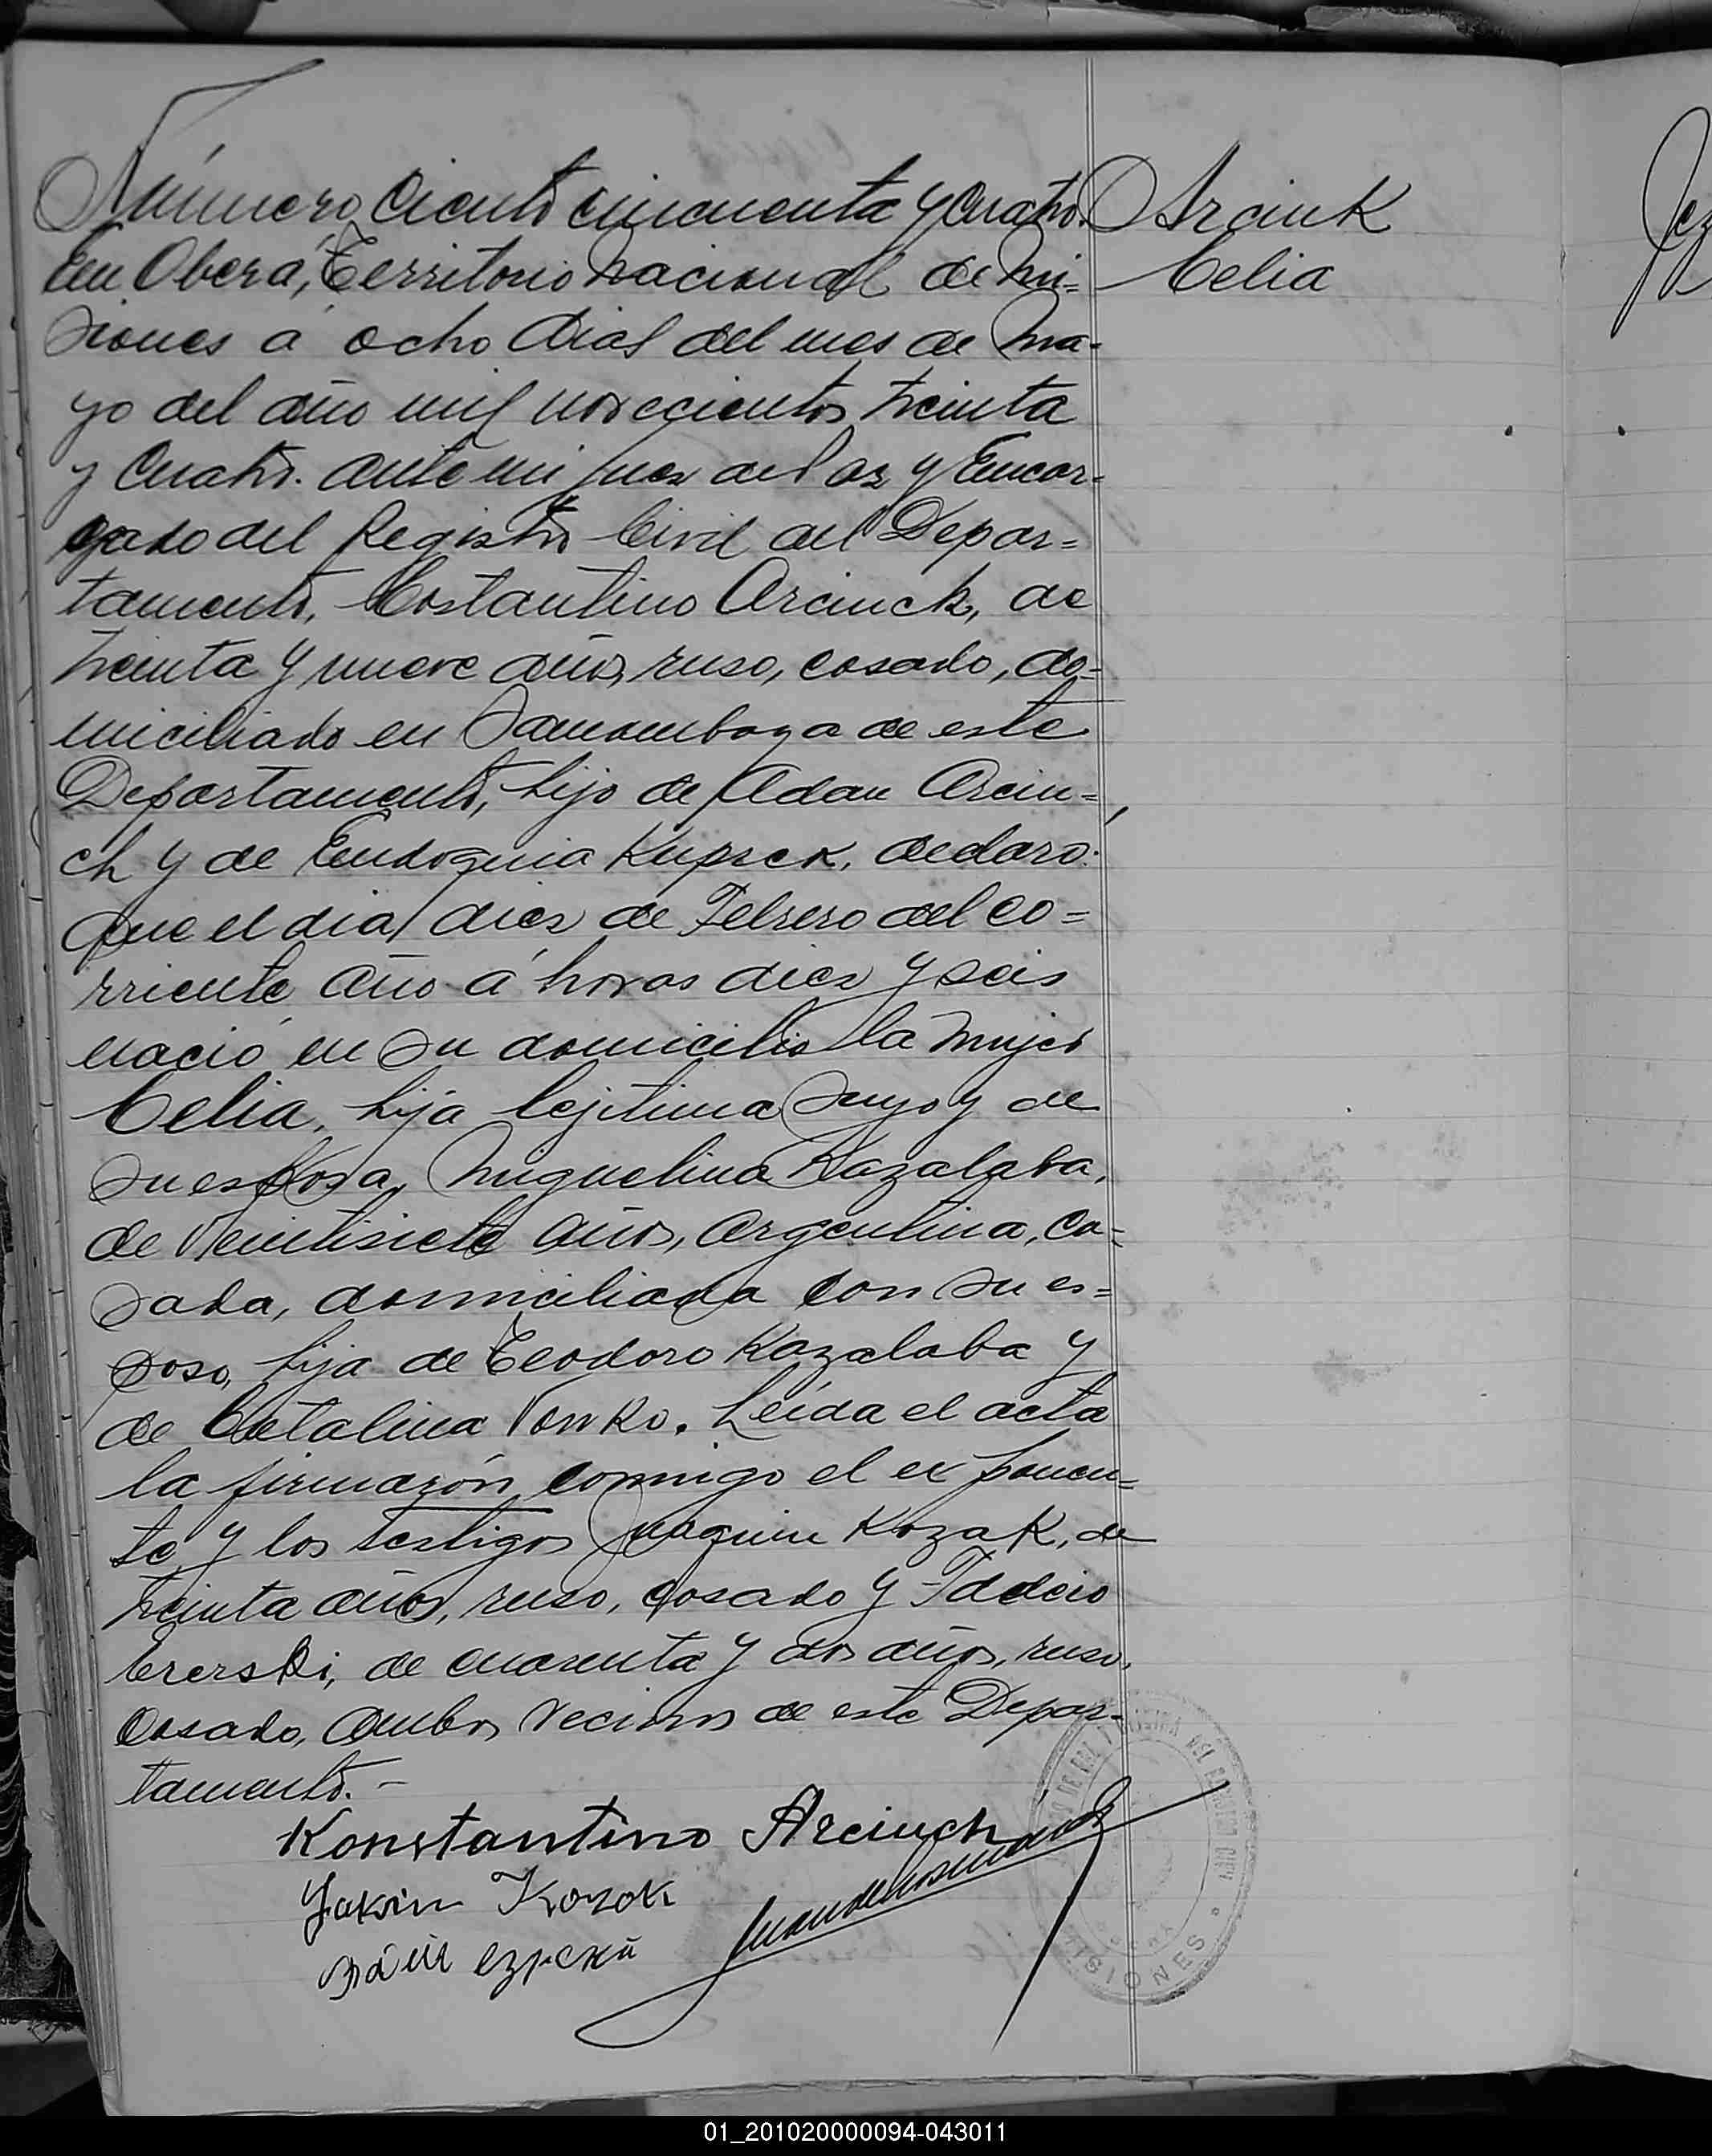 Número Ciento cincuenta y cuatro.
Arciuk
Celia
En Oberá, Territorio Nacional de Mi=
siones á ocho dias del mes de Ma-
yo del año mil novecientos treinta
y cuatro. ante mi Juez de Paz y Encar-
gado del Registro Civil del Depar=
tamento, Costantino Arciuck, de
treinta y nueve años, ruso, casado, do=
miciliado en Samambaya de este
Departamento, hijo de Adan Arciu=
ch y de Eudoquia Kupsck, declaro:
Que el dia diez de Febrero del co=
rriente año á horas diez y seis
nació en su domicilio la mujer
Celia, hija lejitima suyo y de
su esposa, Miguelina Kazalaba,
de veintisiete años, argentina, ca=
sada, domiciliada con su es=
poso, hija de Teodoro Kazalaba y
de Catalina Vonko. Leida el acta
la firmarón conmigo el exponen=
te y los testigos Joaquin Kozak, de
treinta años, ruso, casado y
de cuarenta y dos años, ruso,
casado, ambos vecinos de este Depar-
tamento.-
Konstantino Arciuch
Jakim Kozok
MISIONES
01_201020000094-043011